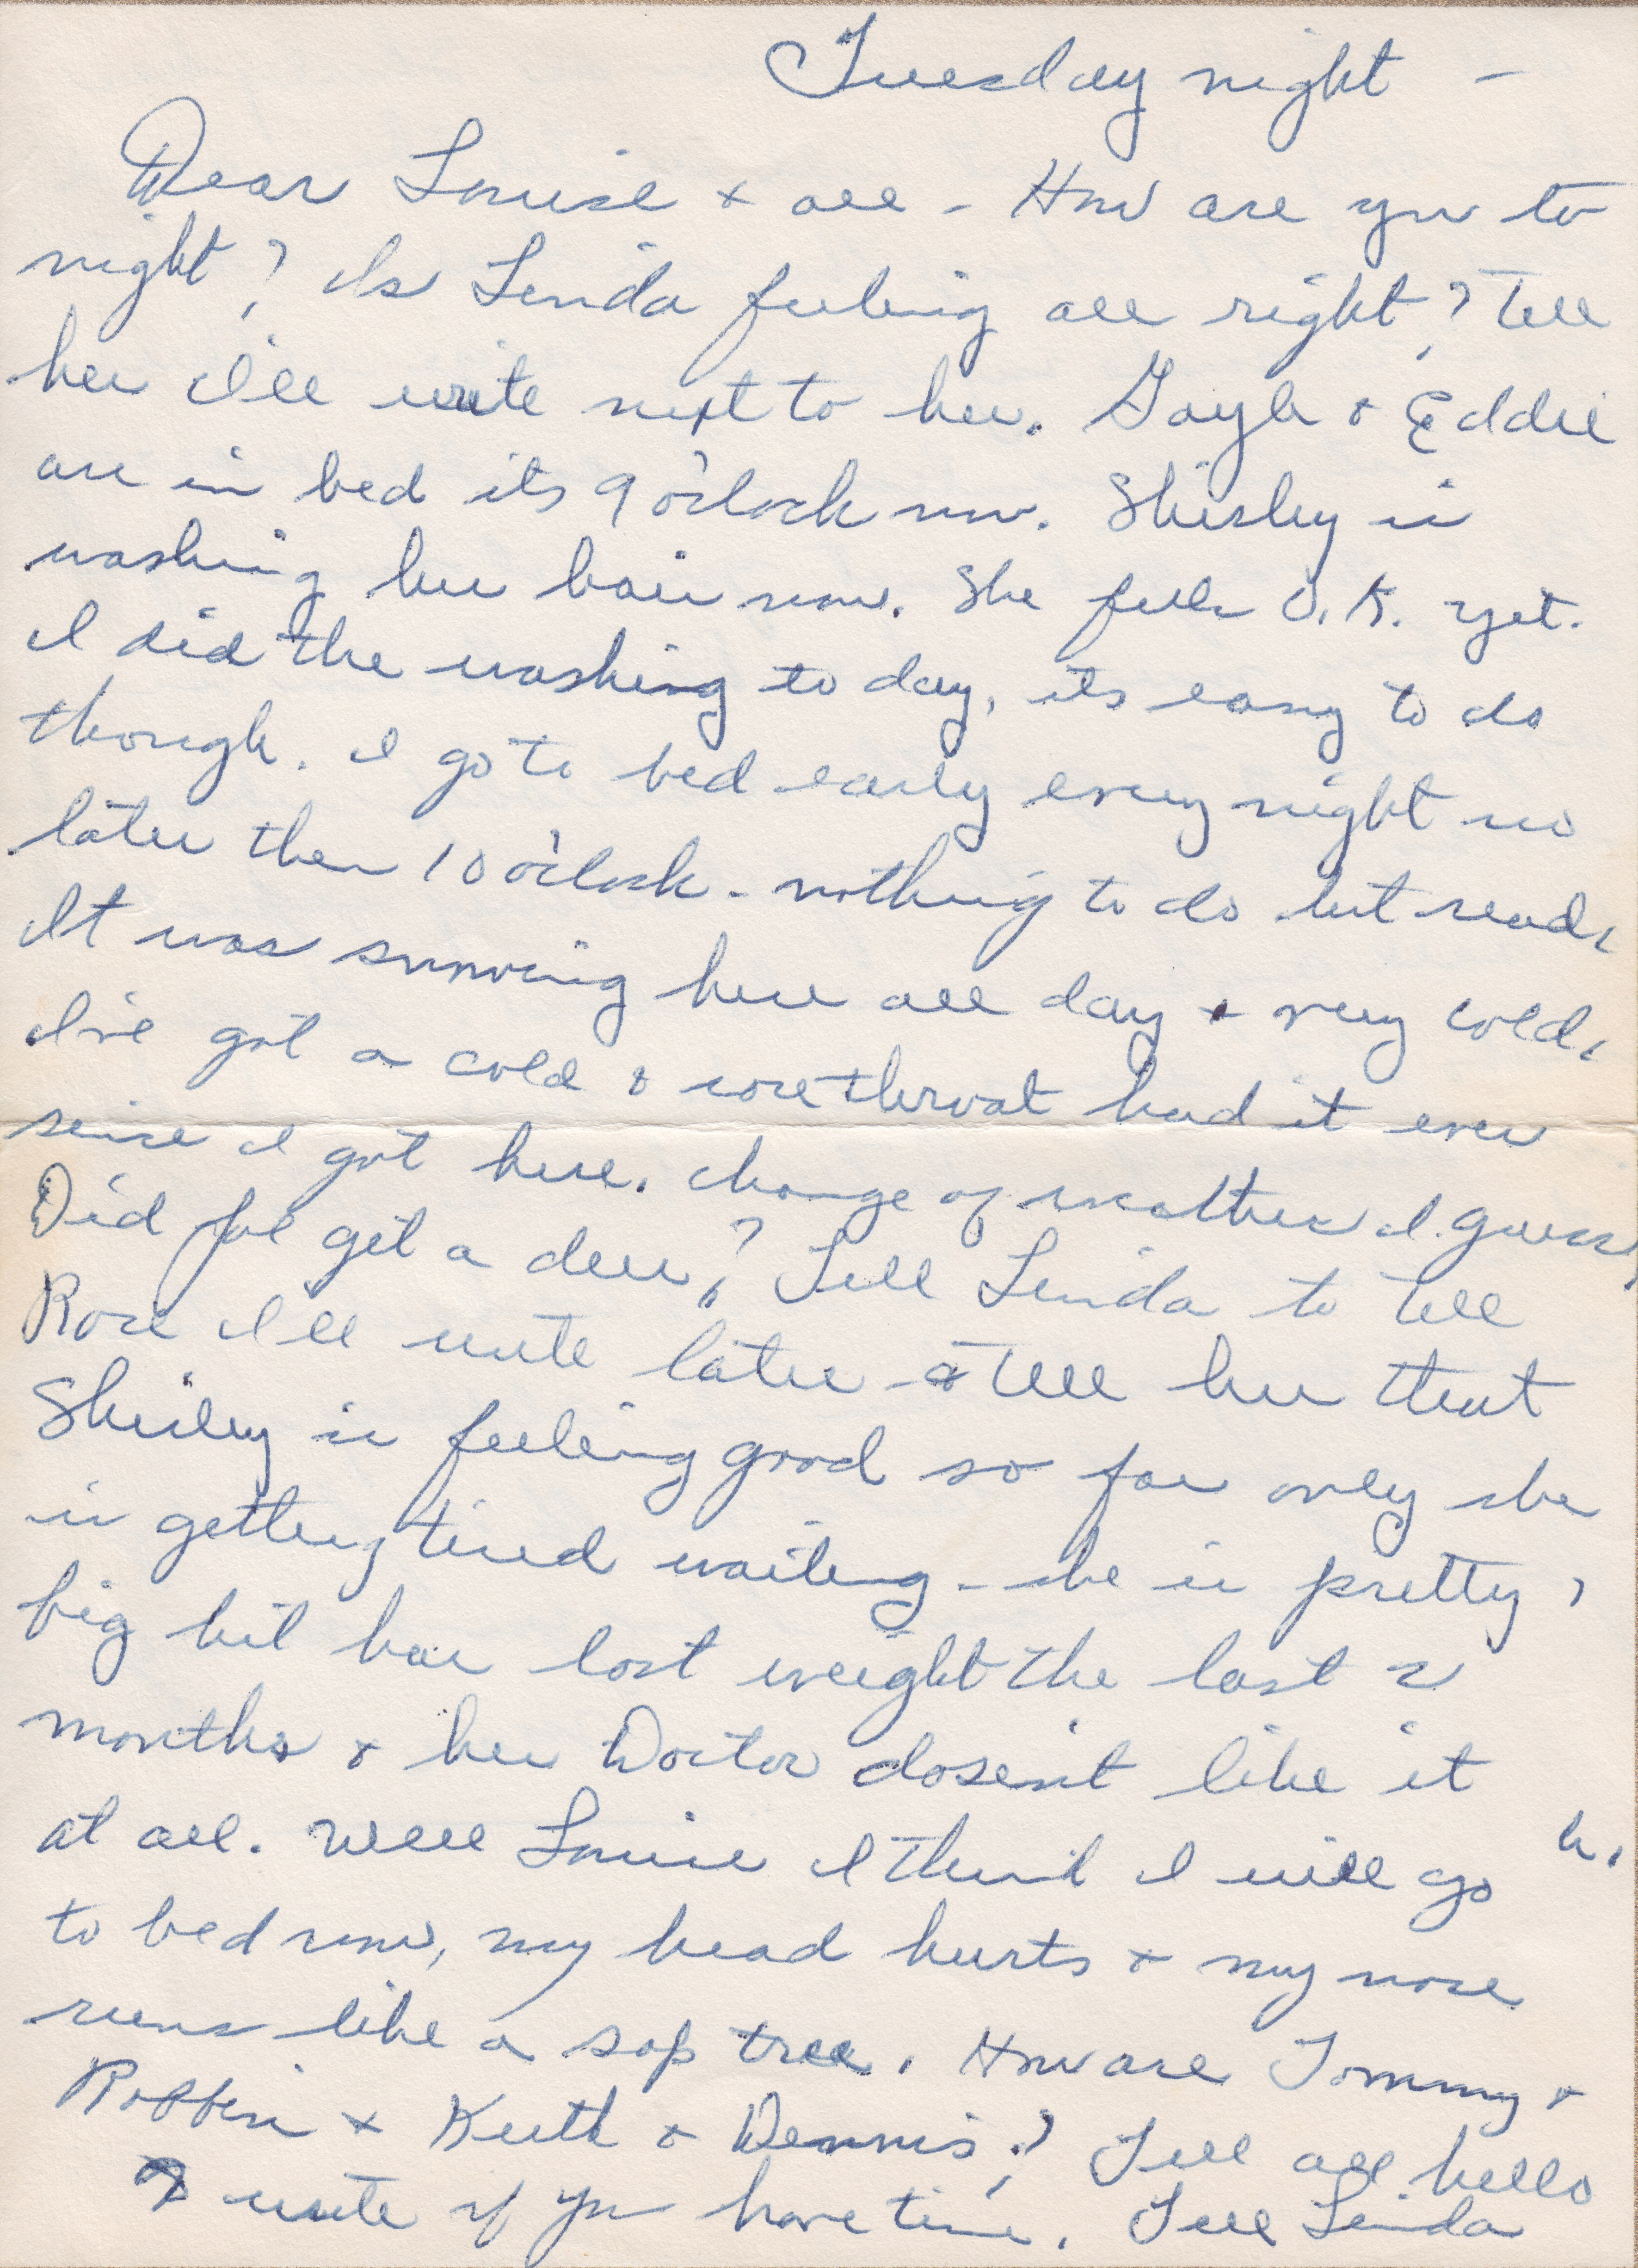 Tuesday night -
Dear Louise + all - How are you to
night? Is Linda feeling all right? Tell
her I'll write next to her. Gayle + Eddie
are in bed its 9 o'clock now. Shirley is
washing her hair now. She feels O.K. yet.
I did the washing to day, its easy to do
though. I go to bed early every night no
later then 10 o'clock - nothing to do but read.
It was snowing here all day + very cold.
I've got a cold + sore throat had it ever
since I got here. Change of weather I guess.
Did Joe get a deer? Tell Linda to tell
Rose I'll write later + tell her that
Shirley is feeling good so far only she
is getting tired waiting - she is pretty
big but has lost weight the last 2
months + her Doctor dosen't like it
at all. Well Louise I think I will go
to bed now, my head hurts + my nose
runs like a sap tree. How are Tommy +
Robbin + Keith + Dennis? Tell all hello
+ write if you have time. Tell Linda